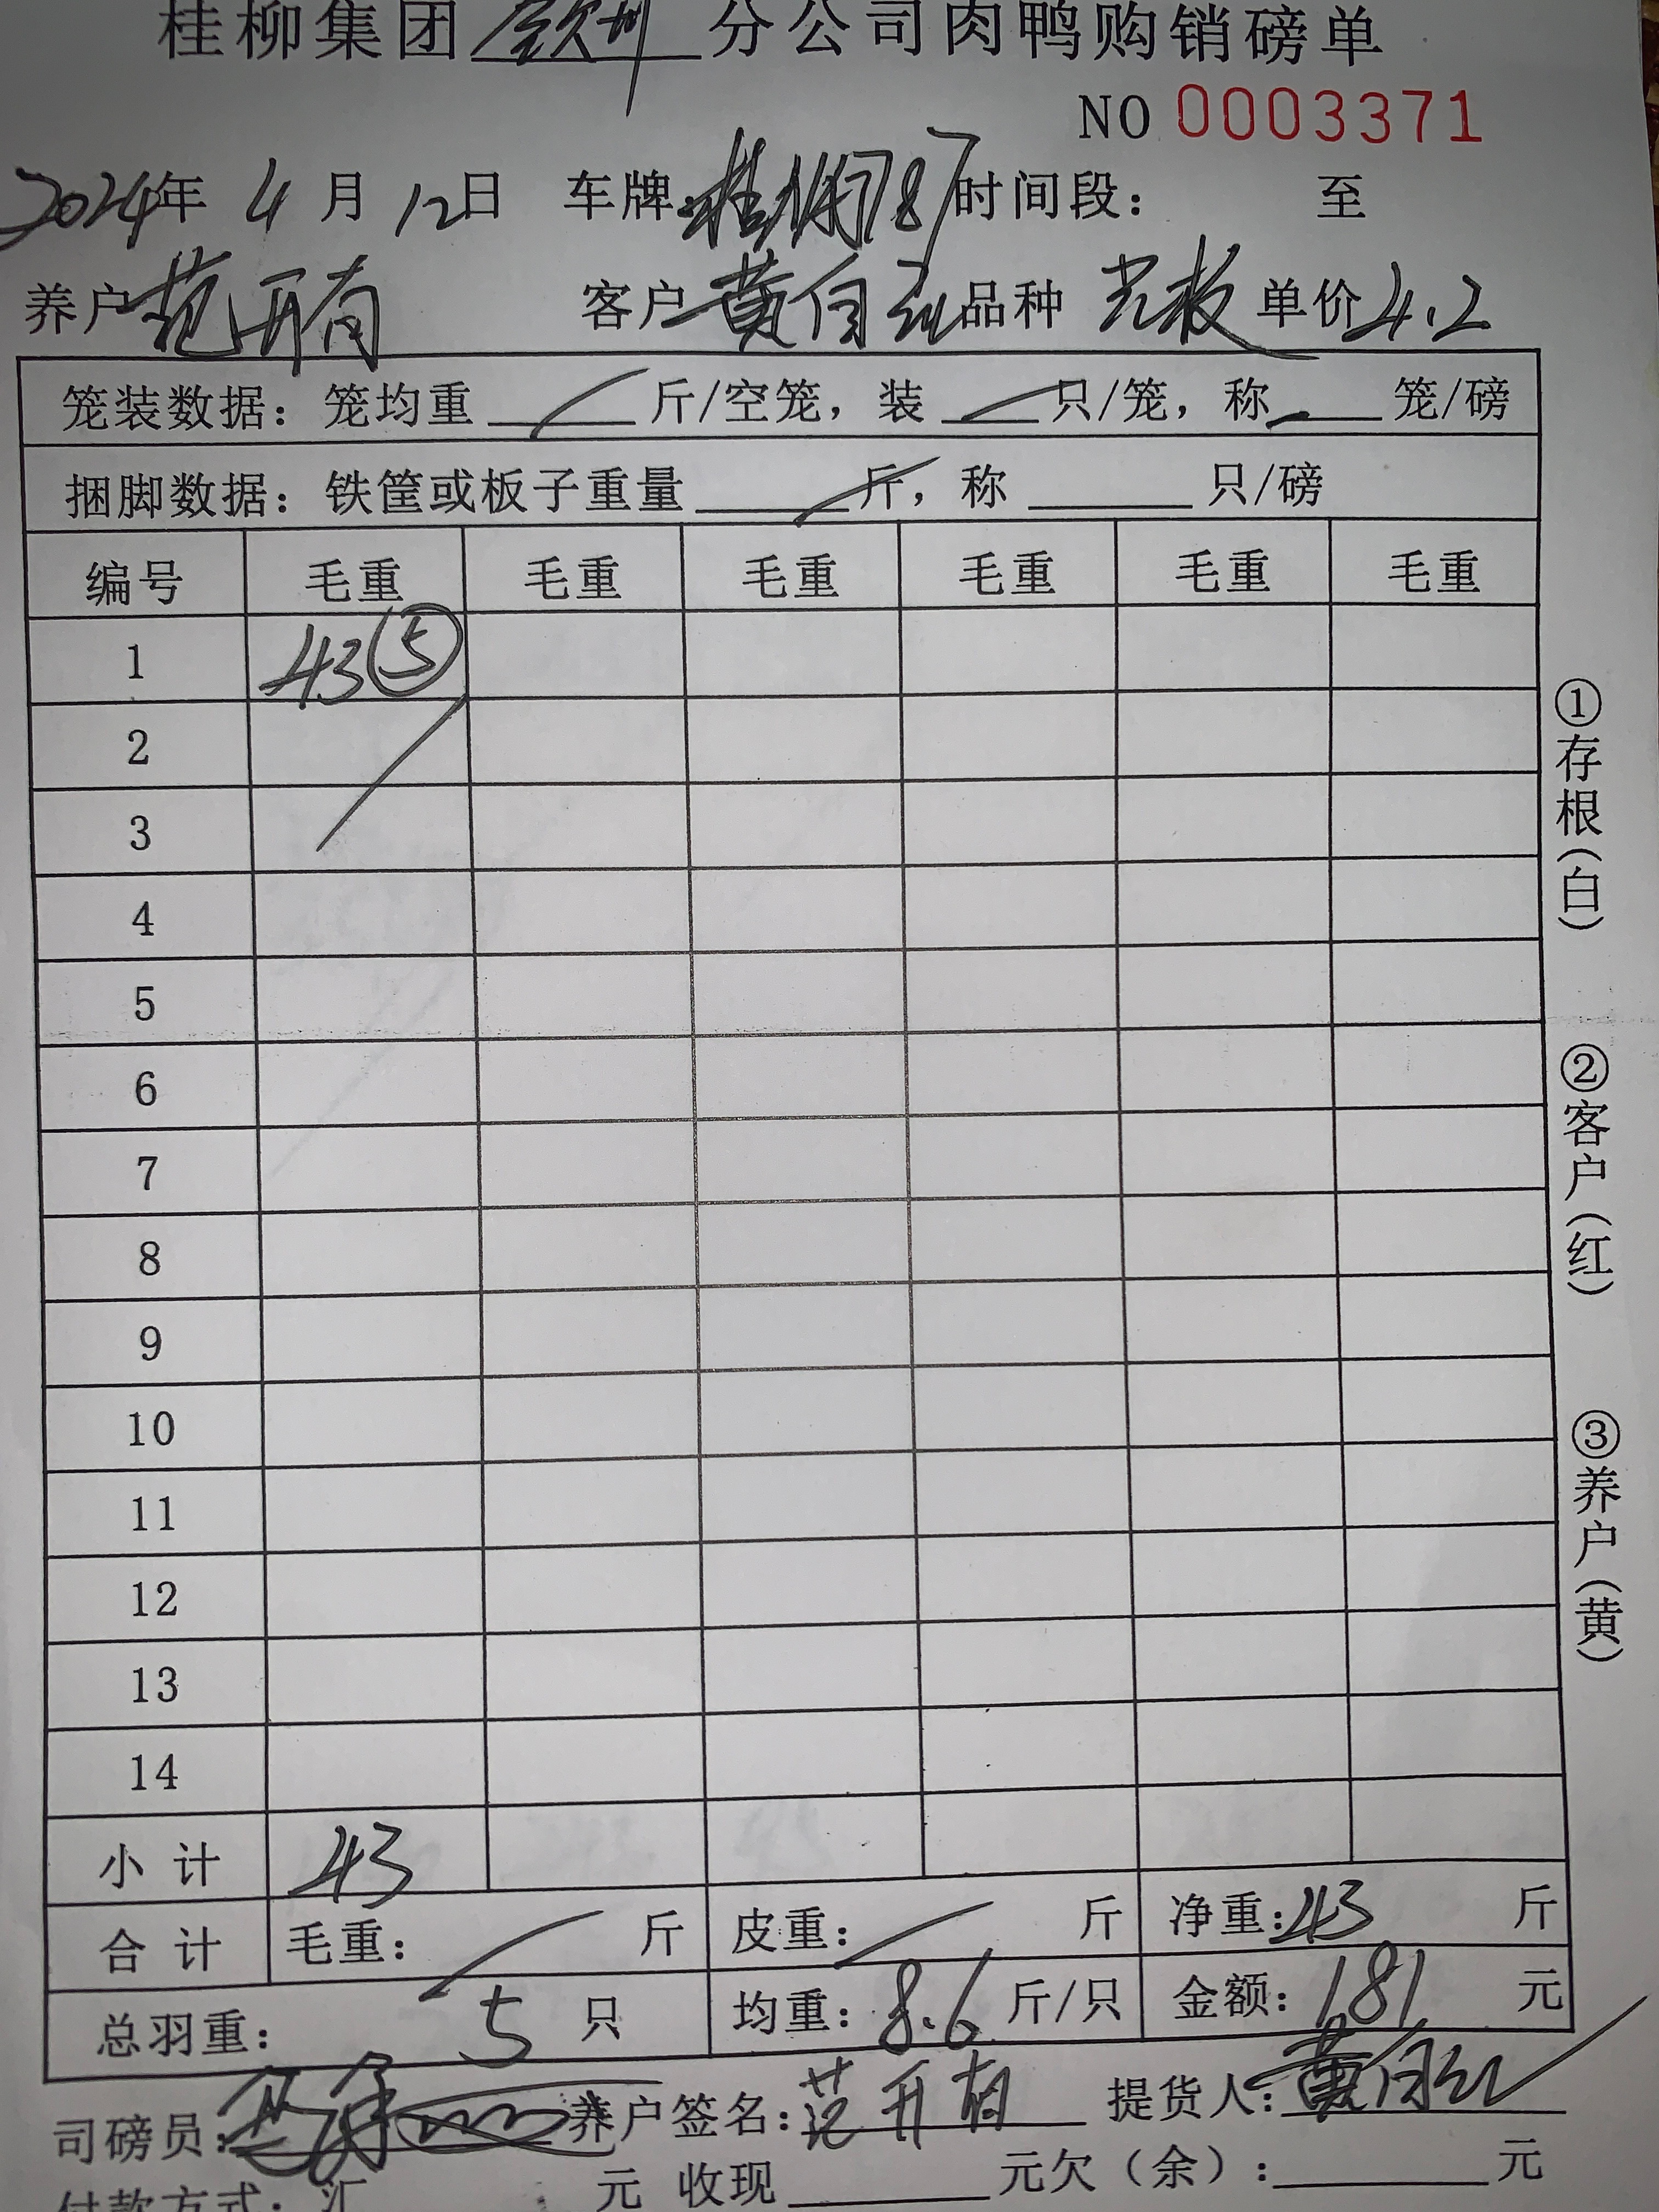 桂柳集团钦州分公司肉鸭购销磅单
NO 0003371
2024年 4月 12日 车牌:桂 787 时间段: 至
养户 范开有 客户 黄自红 品种 光板 单价 4.2
笼装数据:笼均重 斤/空笼,装 只/笼,称 笼/磅
捆脚数据:铁筐或板子重量 斤,称 只/磅
编号 毛重 毛重 毛重 毛重 毛重 毛重
1 43⑤
2
3
4
5
6
7
8
9
10
11
12
13
14
小计 43
合计 毛重: 斤 皮重: 斤 净重:43 斤
总羽重: 5 只 均重:8.6 斤/只 金额:181 元
司磅员: 养户签名:范开有 提货人:黄自红
付款方式:汇 元 收现 元欠(余): 元
①存根(白)
②客户(红)
③养户(黄)